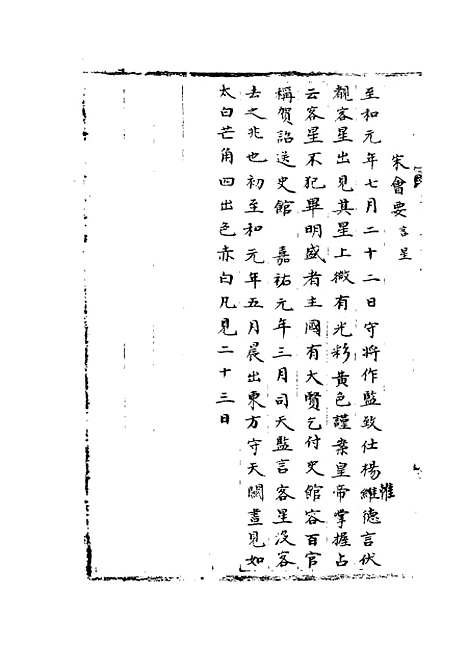 宋會要 客星
至和元年七月二十二日守將作監致仕楊維德言伏
睹客星出見其星上微有光彩黃色謹案皇帝掌握占
云客星不犯畢明盛者主國有大賢乞付史館容百官
稱賀詔送史館 嘉祐元年三月司天監言客星沒客
去之兆也初至和元年五月晨出東方守天關晝見如
太白芒角四出色赤白凡見二十三日
惟